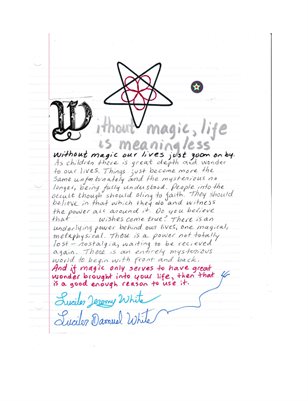 Without magic, life
is meaningless
Without magic our lives just goom on by.
As children there is great depth and wonder
to our lives. Things just become more the
same unfortunately and the mysterious no
longer, being fully understood. People into the
occult though should cling to faith. They should
believe in that which they do and witness
the power all around it. Do you believe
that wishes come true? There is an
underlying power behind our lives, one magical,
metaphysical. There is a power not totally
lost - nostalgia, waiting to be recieved
again. There is an entirely mysterious
world to begin with front and back.
And if magic only serves to have great
wonder brought into your life, then that
is a good enough reason to use it.
Lucifer Jeremy White
Lucifer Damuel White